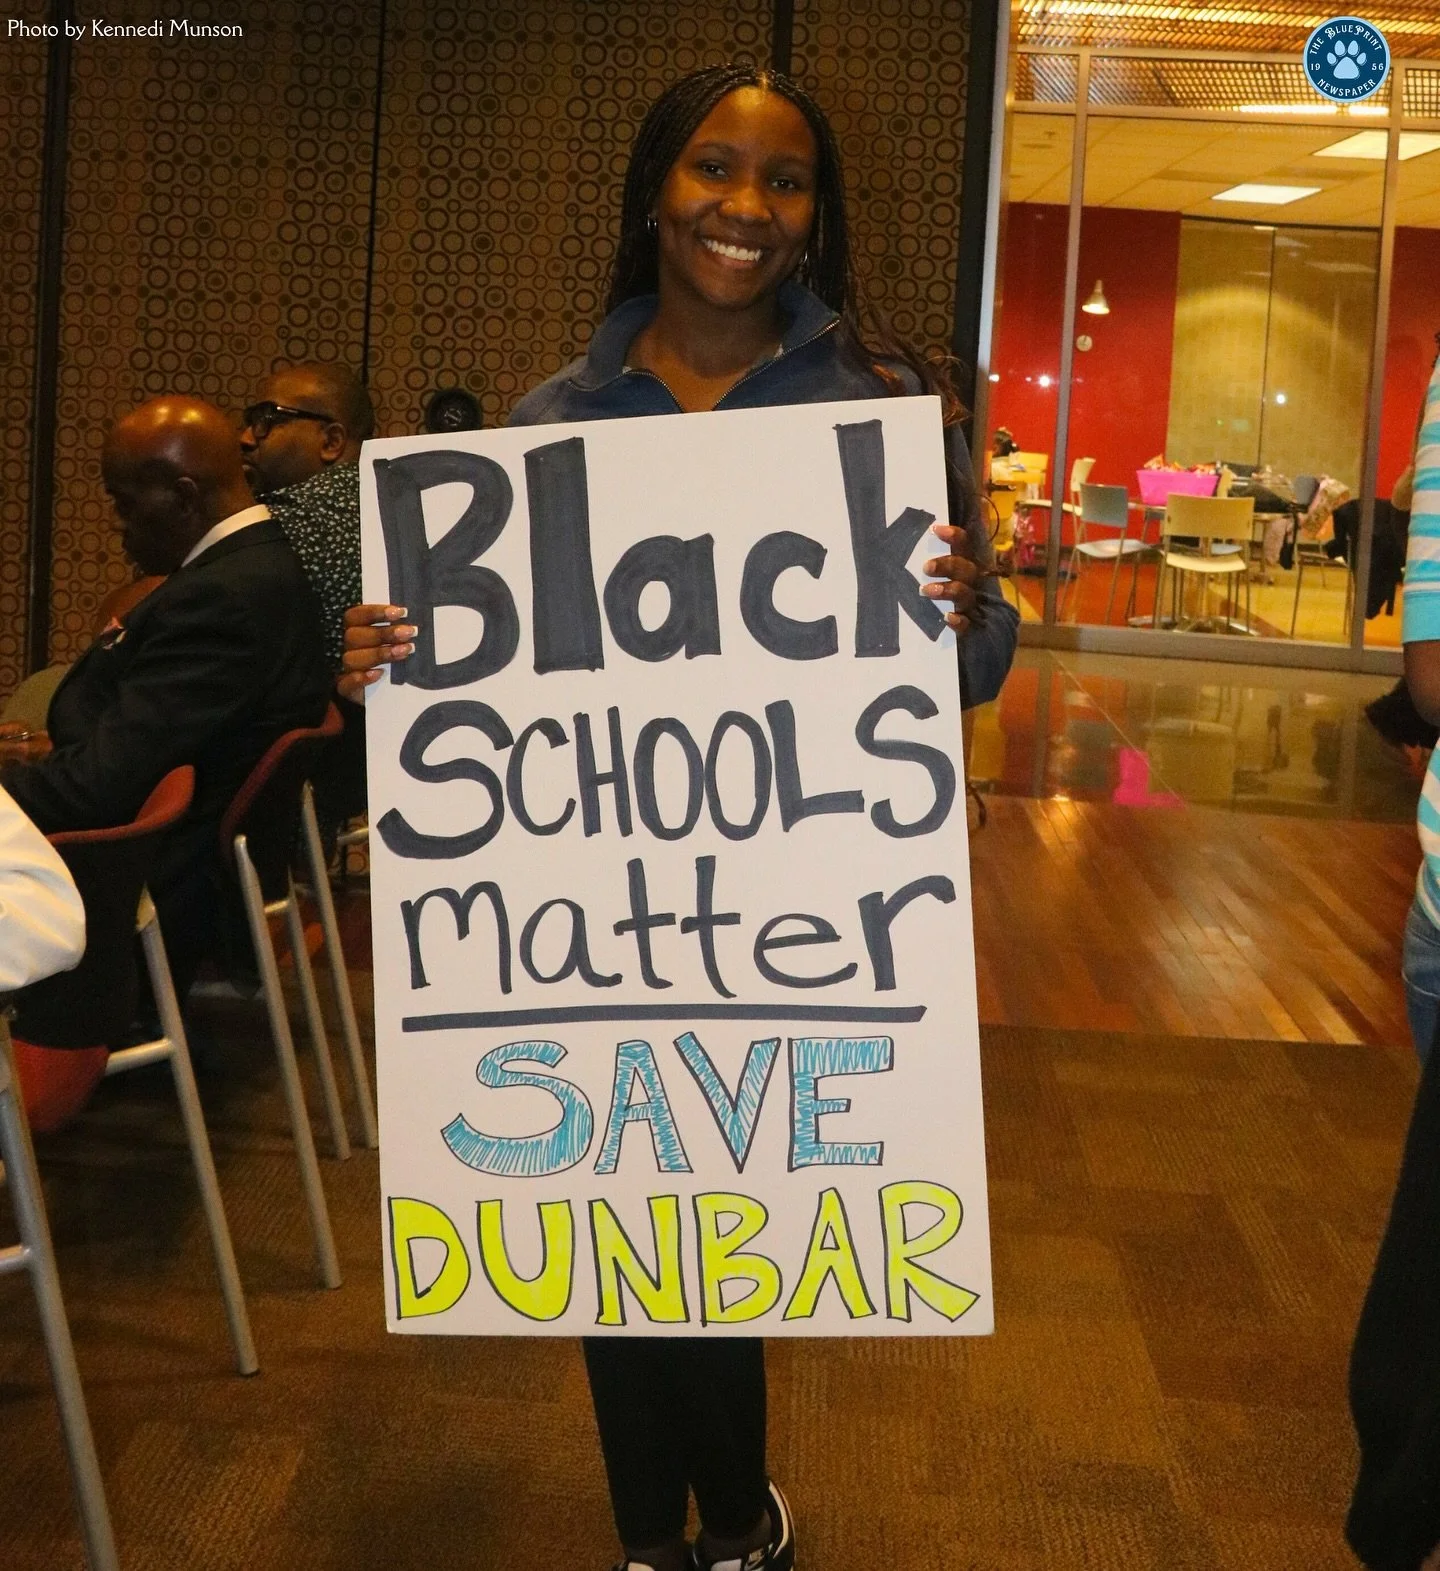 Photo by Kennedi Munson
THE BLUEPRINT
19 56
NEWSPAPER
Black
SCHOOLS
matter
SAVE
DUNBAR